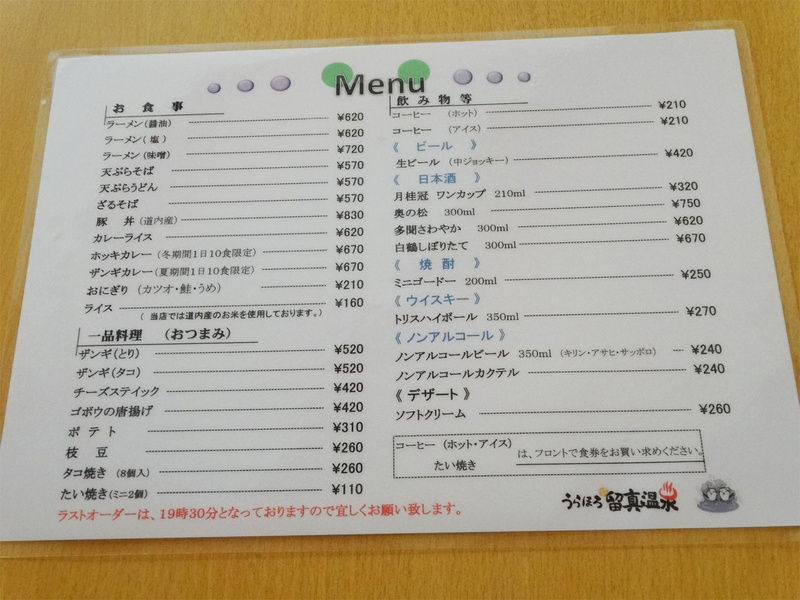 Menu
お食事
ラーメン(醤油) ¥620
ラーメン(塩) ¥620
ラーメン(味噌) ¥720
天ぷらそば ¥570
天ぷらうどん ¥570
ざるそば ¥570
豚丼(道内産) ¥830
カレーライス ¥620
ホッキカレー(冬期間1日10食限定) ¥670
ザンギカレー(夏期間1日10食限定) ¥670
おにぎり(カツオ・鮭・うめ) ¥210
ライス ¥160
(当店では道内産のお米を使用しております。)
一品料理 (おつまみ)
ザンギ(とり) ¥520
ザンギ(タコ) ¥520
チーズスティック ¥420
ゴボウの唐揚げ ¥420
ポテト ¥310
枝豆 ¥260
タコ焼き (8個入) ¥260
たい焼き(ミニ2個) ¥110
ラストオーダーは、19時30分となっておりますので宜しくお願い致します。
飲み物等
コーヒー (ホット) ¥210
コーヒー (アイス) ¥210
《 ビール 》
生ビール (中ジョッキー) ¥420
《 日本酒 》
月桂冠 ワンカップ 210ml ¥320
奥の松 300ml ¥750
多聞さわやか 300ml ¥620
白鶴しぼりたて 300ml ¥670
《 焼酎 》
ミニゴードー 200ml ¥250
《 ウイスキー 》
トリスハイボール 350ml ¥270
《 ノンアルコール 》
ノンアルコールビール 350ml (キリン・アサヒ・サッポロ) ¥240
ノンアルコールカクテル ¥240
《 デザート 》
ソフトクリーム ¥260
コーヒー (ホット・アイス)
たい焼き
は、フロントで食券をお買い求めください。
うらほろ 留真温泉